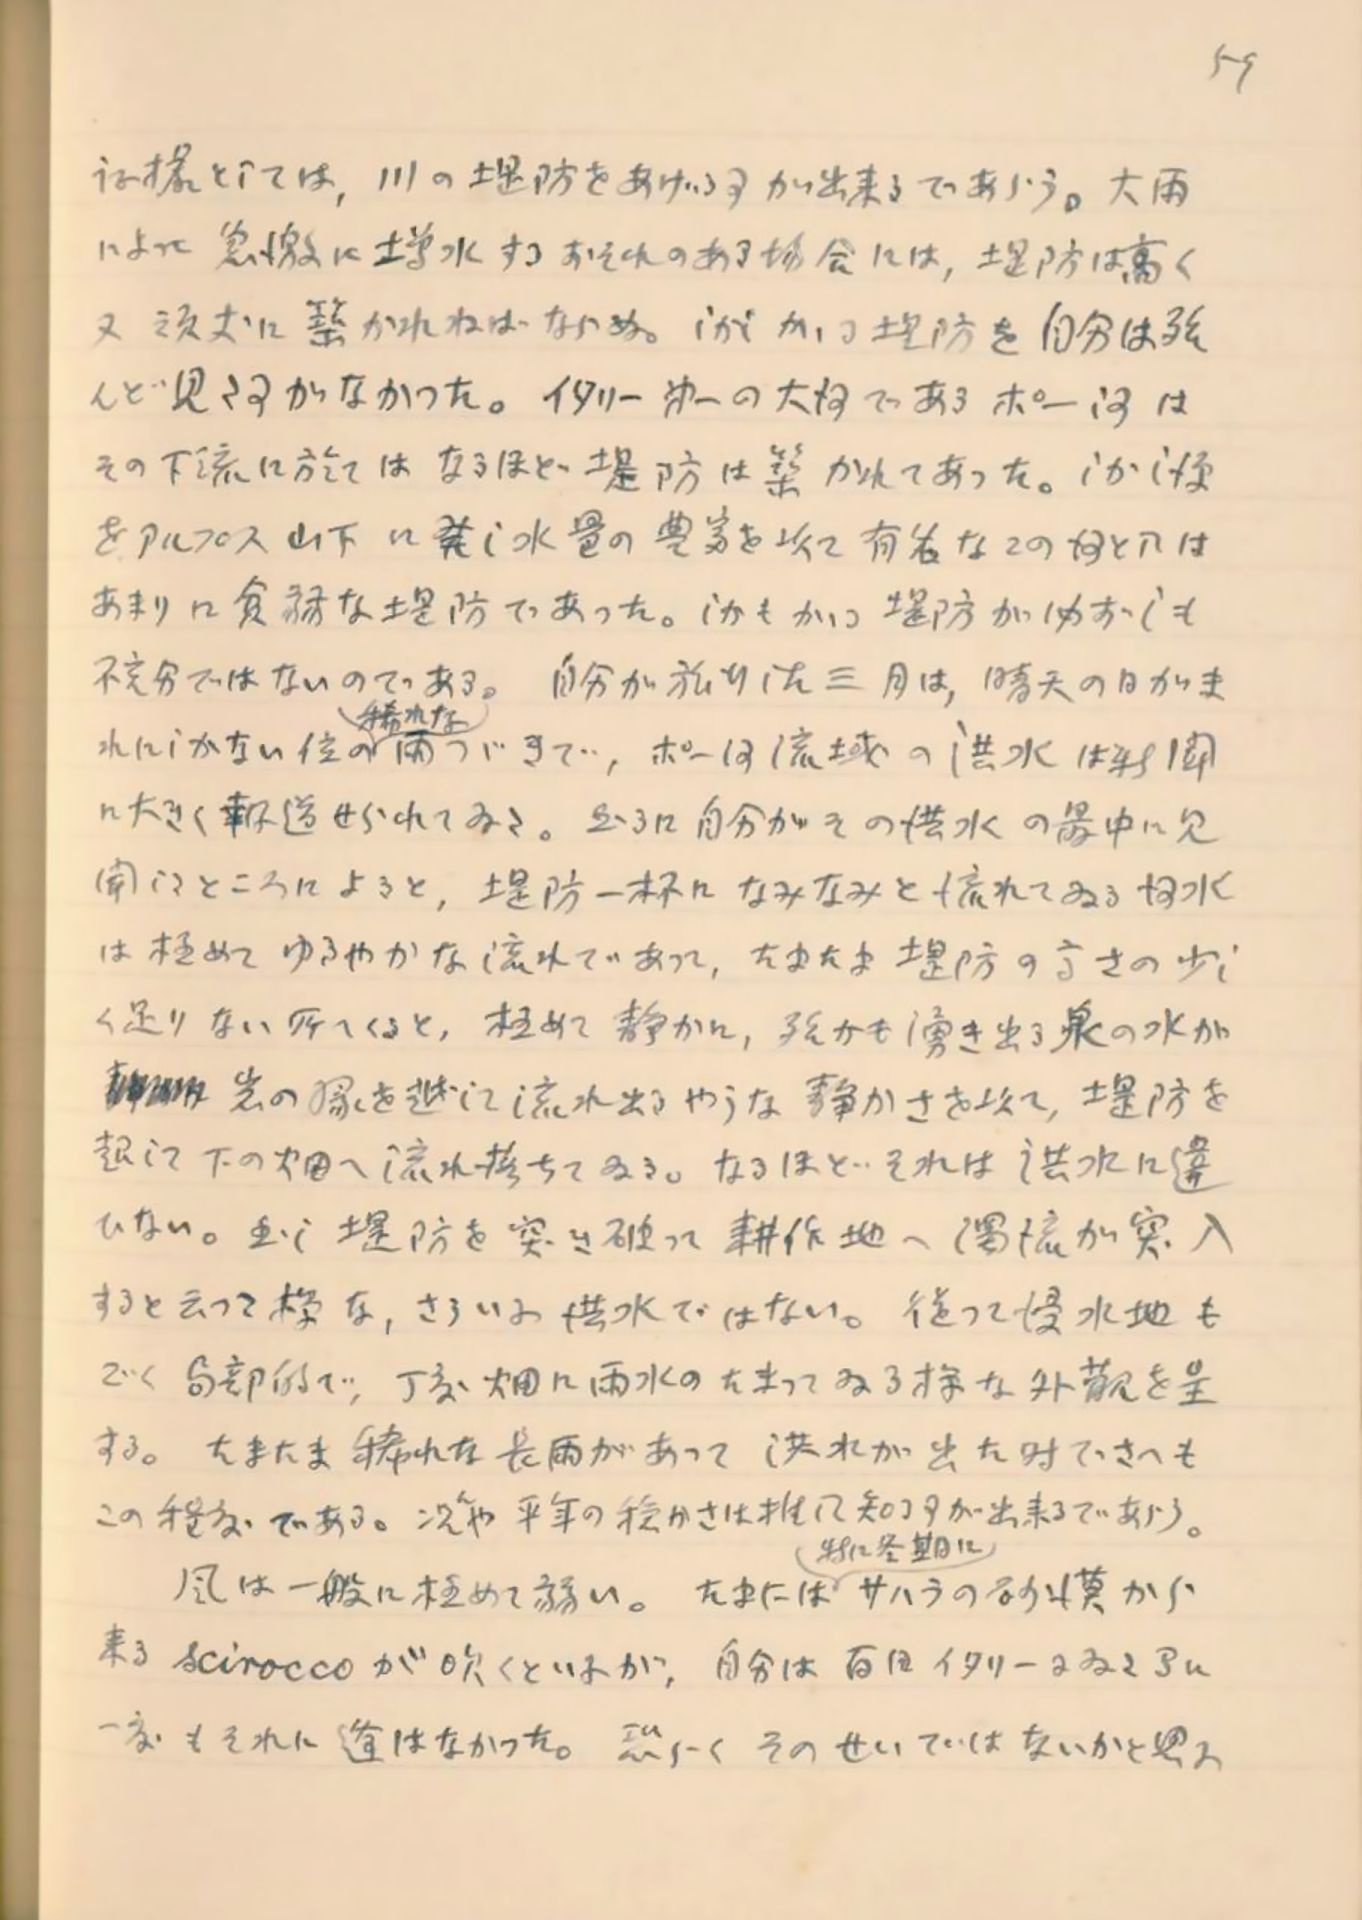 59
証據としては, 川の堤防をあげる事が出来るであらう。大雨
によって急激に増水するおそれのある場合には, 堤防は高く
又頑丈に築かれねばならぬ。しかしかゝる堤防を自分は殆
んど見る事がなかった。イタリー第一の大河であるポー河は
その下流に於ては なるほど堤防は築かれてあった。しかし源
をアルプス山下に発し水量の豊富を以て有名なこの河としては
あまりに貧弱な堤防であった。しかもかゝる堤防が必ずしも
不充分ではないのである。 自分が旅行した三月は, 晴天の日がま
れにしかない位の稀れな雨つゞきで, ポー河流域の洪水は新聞
に大きく報道せられてゐた。然るに自分がその洪水の最中に見
聞したところによると, 堤防一杯になみなみと流れてゐる河水
は極めてゆるやかな流れであって, たまたま堤防の高さの少し
く足りない所へくると, 極めて静かに, 殆かも湧き出る泉の水が
岩の縁を越して流れ出るやうな静かさを以て, 堤防を
越して下の畑へ流れ落ちてゐる。なるほどそれは洪水に違
ひない。然し堤防を突き破って耕作地へ濁流が突入
すると云った様な, さういふ洪水ではない。従って浸水地も
ごく局部的で, 丁度畑に雨水のたまってゐる様な外観を呈
する。 たまたま稀れな長雨があって洪水が出た時でさへも
この程度である。況や平年の穏かさは推して知る事が出来るであらう。
風は一般に極めて弱い。 たまには特に冬期にサハラの砂漠から
来る sciroccoが吹くといふが, 自分は百日イタリーにゐた間に
一度もそれに逢はなかった。恐らくそのせいではないかと思ふ